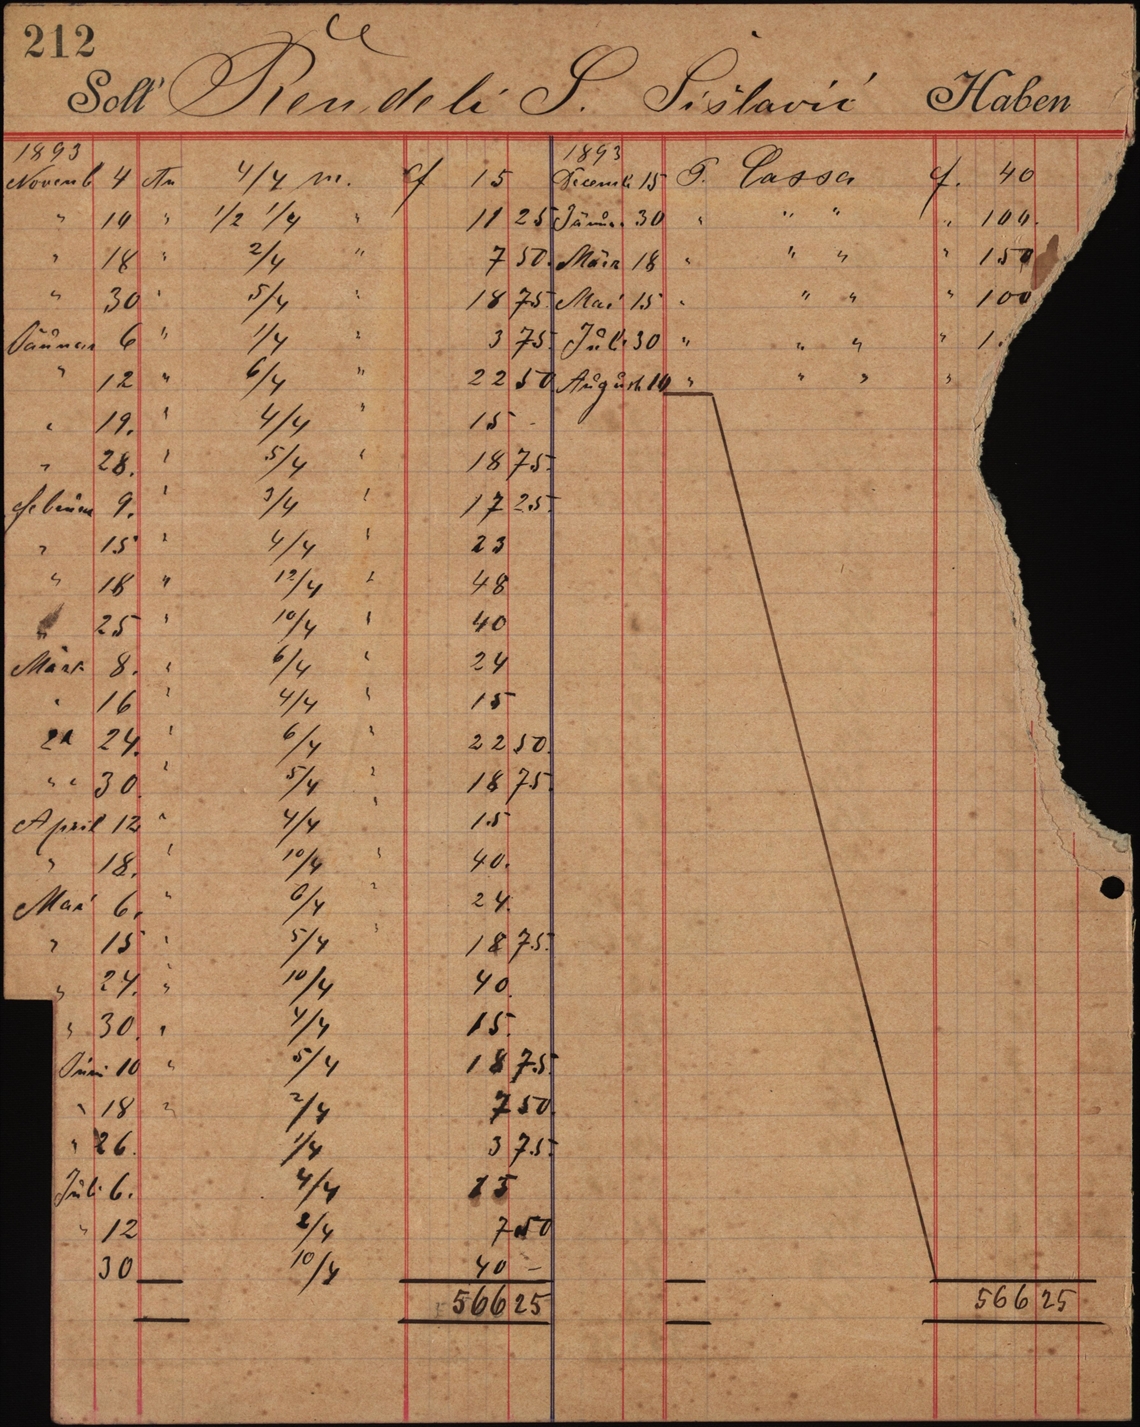 212
Soll Rendeli S. Sislavić Haben
1893 1893
Novemb 4 An 4/4 m. f 15 Decemb 15 P. Cassa f. 40
" 10 " 1/2 1/4 " 11 25 Jänn. 30 " " " " 100.
" 18 " 2/4 " 7 50. März 18 " " " " 150
" 30 " 5/4 " 18 75. Mai 15 " " " " 100
Jänner 6 " 1/4 " 3 75. Juli 30 " " " " 1
" 12 " 6/4 " 22 50 August 10 " " " "
" 19. " 4/4 " 15 -
" 28. " 5/4 " 18 75.
Februar 9. " 3/4 " 17 25.
" 15 " 4/4 " 23
" 18 " 12/4 " 48
" 25 " 10/4 " 40
März 8. " 6/4 " 24
" 16 " 4/4 " 15
24. " 6/4 " 22 50.
" " 30. " 5/4 " 18 75.
April 12 " 4/4 " 15
" 18. " 10/4 " 40.
Mai 6. " 6/4 " 24.
" 15 " 5/4 " 18 75.
" 24. " 10/4 40.
" 30. " 4/4 15.
Juni 10 " 5/4 18 75.
" 18 " 2/4 7 50.
" 26. 1/4 3 75.
Juli 6. 4/4 15
" 12 2/4 7 50
30 10/4 40 -
566 25 566 25